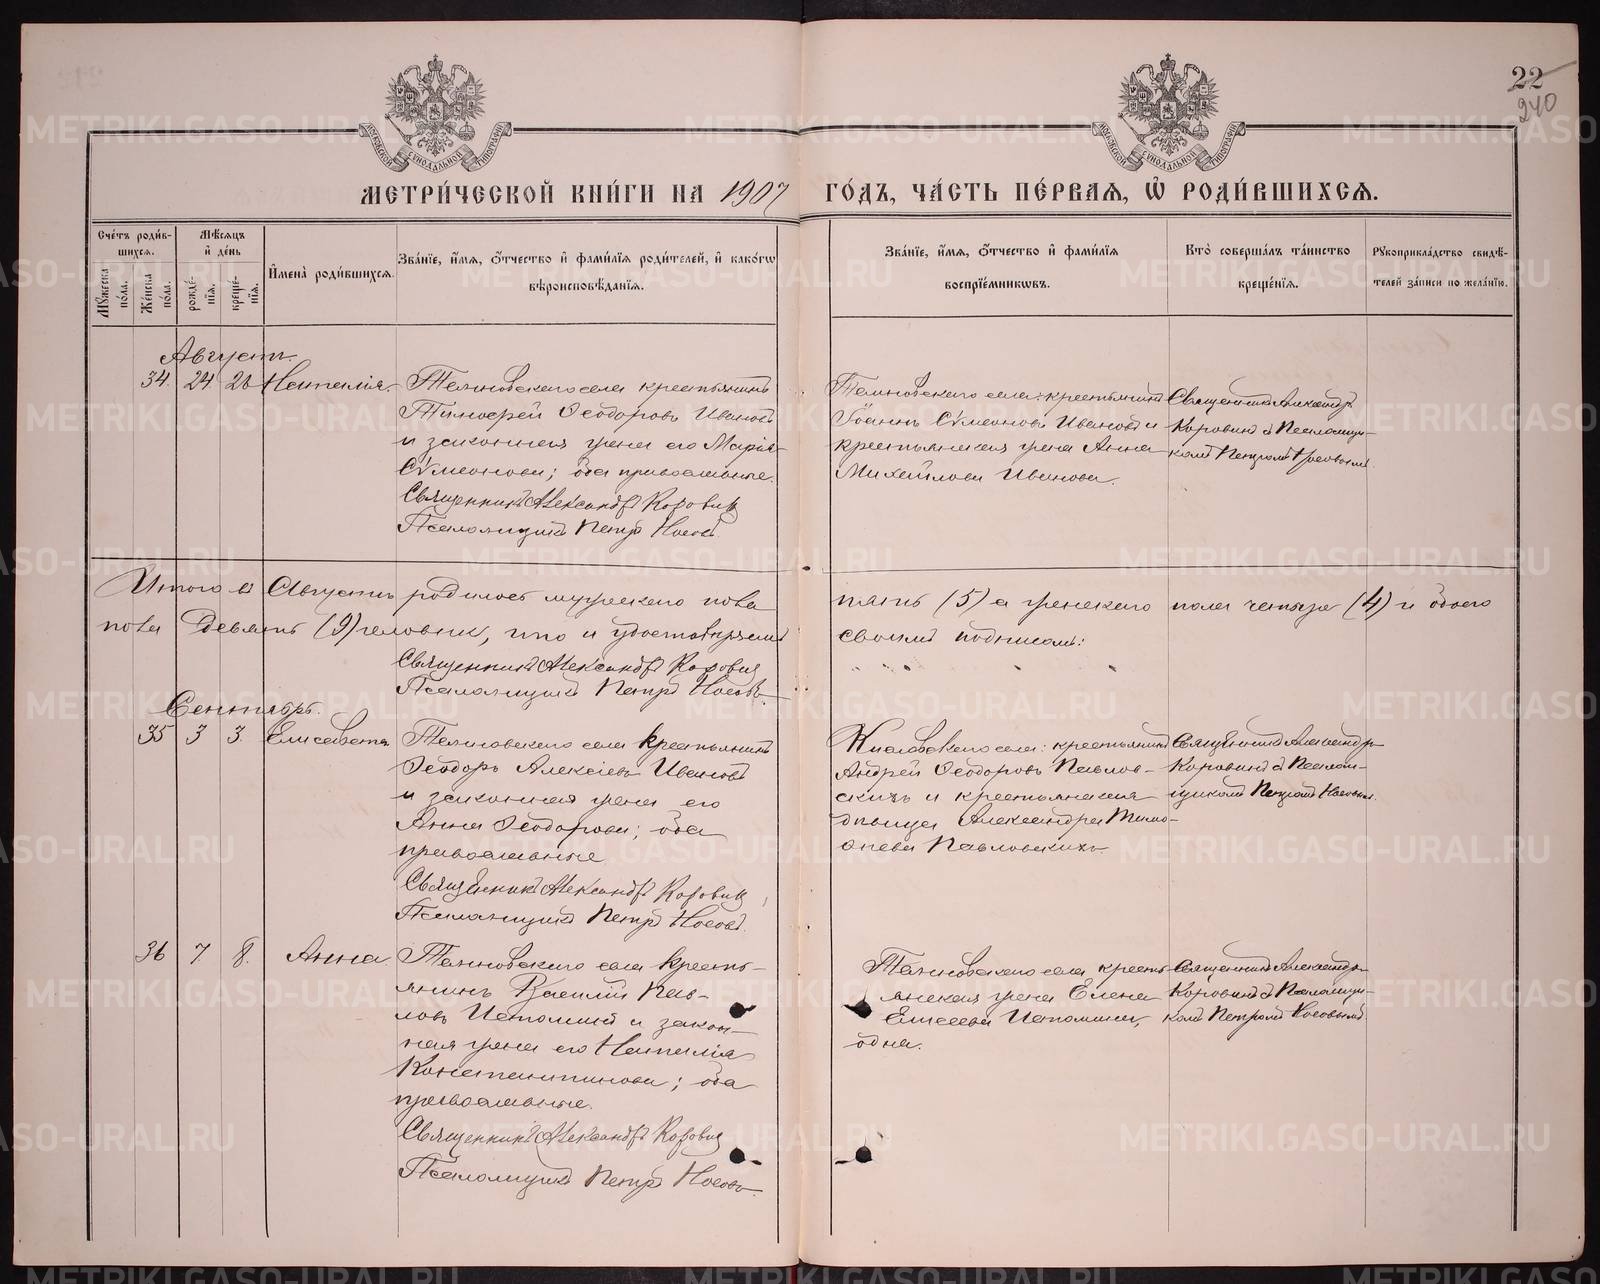 22
240
МЕТРИ́ЧЕСКОЙ КНИ́ГИ НА 1907 ГО́ДЪ, ЧА́СТЬ ПЕ́РВАЯ, Ѽ РОДИ́ВШИХСЯ.
Сче́тъ роди́в-
шихся.
Мꙋ́жеска по́ла.
Же́нска по́ла.
Мѣ́сяцъ
и де́нь
рожде́-
нїя.
креще́-
нїя.
И́мена роди́вшихся.
Зва́нїе, и́мя, ѻ́тчество и фами́лїя роди́телей, и како́гѡ
вѣроисповѣ́данїя.
Зва́нїе, и́мя, ѻ́тчество и фами́лїя
воспрїе́мникѡвъ.
Кто̀ соверша́лъ та́инство
креще́нїя.
Рꙋкоприкла́дство свидѣ́-
телей за́писи по жела́нїю.
Августъ.
34. 24. 26 Наталія.
села крестьянинъ
Тимофей Ѳеодоровъ Ивановъ
и законная жена его Марія
Сѵмеонова; оба православные.
Священникъ Александръ Коровин
Псаломщикъ Петръ Носовъ.
села: крестьянинъ
Іоаннъ Сѵмеоновъ Ивановъ и
крестьянская жена Анна
Михайлова Иванова.
Священникъ Александръ
Коровинъ съ Псаломщи-
комъ Петромъ Носовымъ.
Итого въ Августѣ родилось мужескаго пола
пять (5) а женскаго пола четыре (4) и обоего
пола девять (9) человѣкъ, что и удостовѣряемъ
своимъ подписомъ:
Священникъ Александръ Коровин
Псаломщикъ Петръ Носовъ.
Сентябрь.
35 3 3. Елисавета
села крестьянинъ
Ѳеодоръ Алексіевъ Ивановъ
и законная жена его
Анна Ѳеодорова; оба
православные
Священникъ Александръ Коровин
Псаломщикъ Петръ Носовъ.
села: крестьянинъ
Андрей Ѳеодоровъ Павлов-
скихъ и крестьянская
дѣвица Александра Тимо-
ѳеева Павловскихъ.
Священникъ Александръ
Коровинъ съ Псалом-
щикомъ Петромъ Носовымъ.
36 7. 8. Анна.
села кресть-
янинъ Василій Пав-
ловъ Истоминъ и закон-
ная жена его Наталія
Константинова; оба
православные.
Священникъ Александръ Коровин
Псаломщикъ Петръ Носовъ.
села кресть-
янская жена Елена
Елисеева Истомина,
одна.
Священникъ Александръ
Коровинъ съ Псаломщи-
комъ Петромъ Носовымъ
METRIKI.GASO-URAL.RU